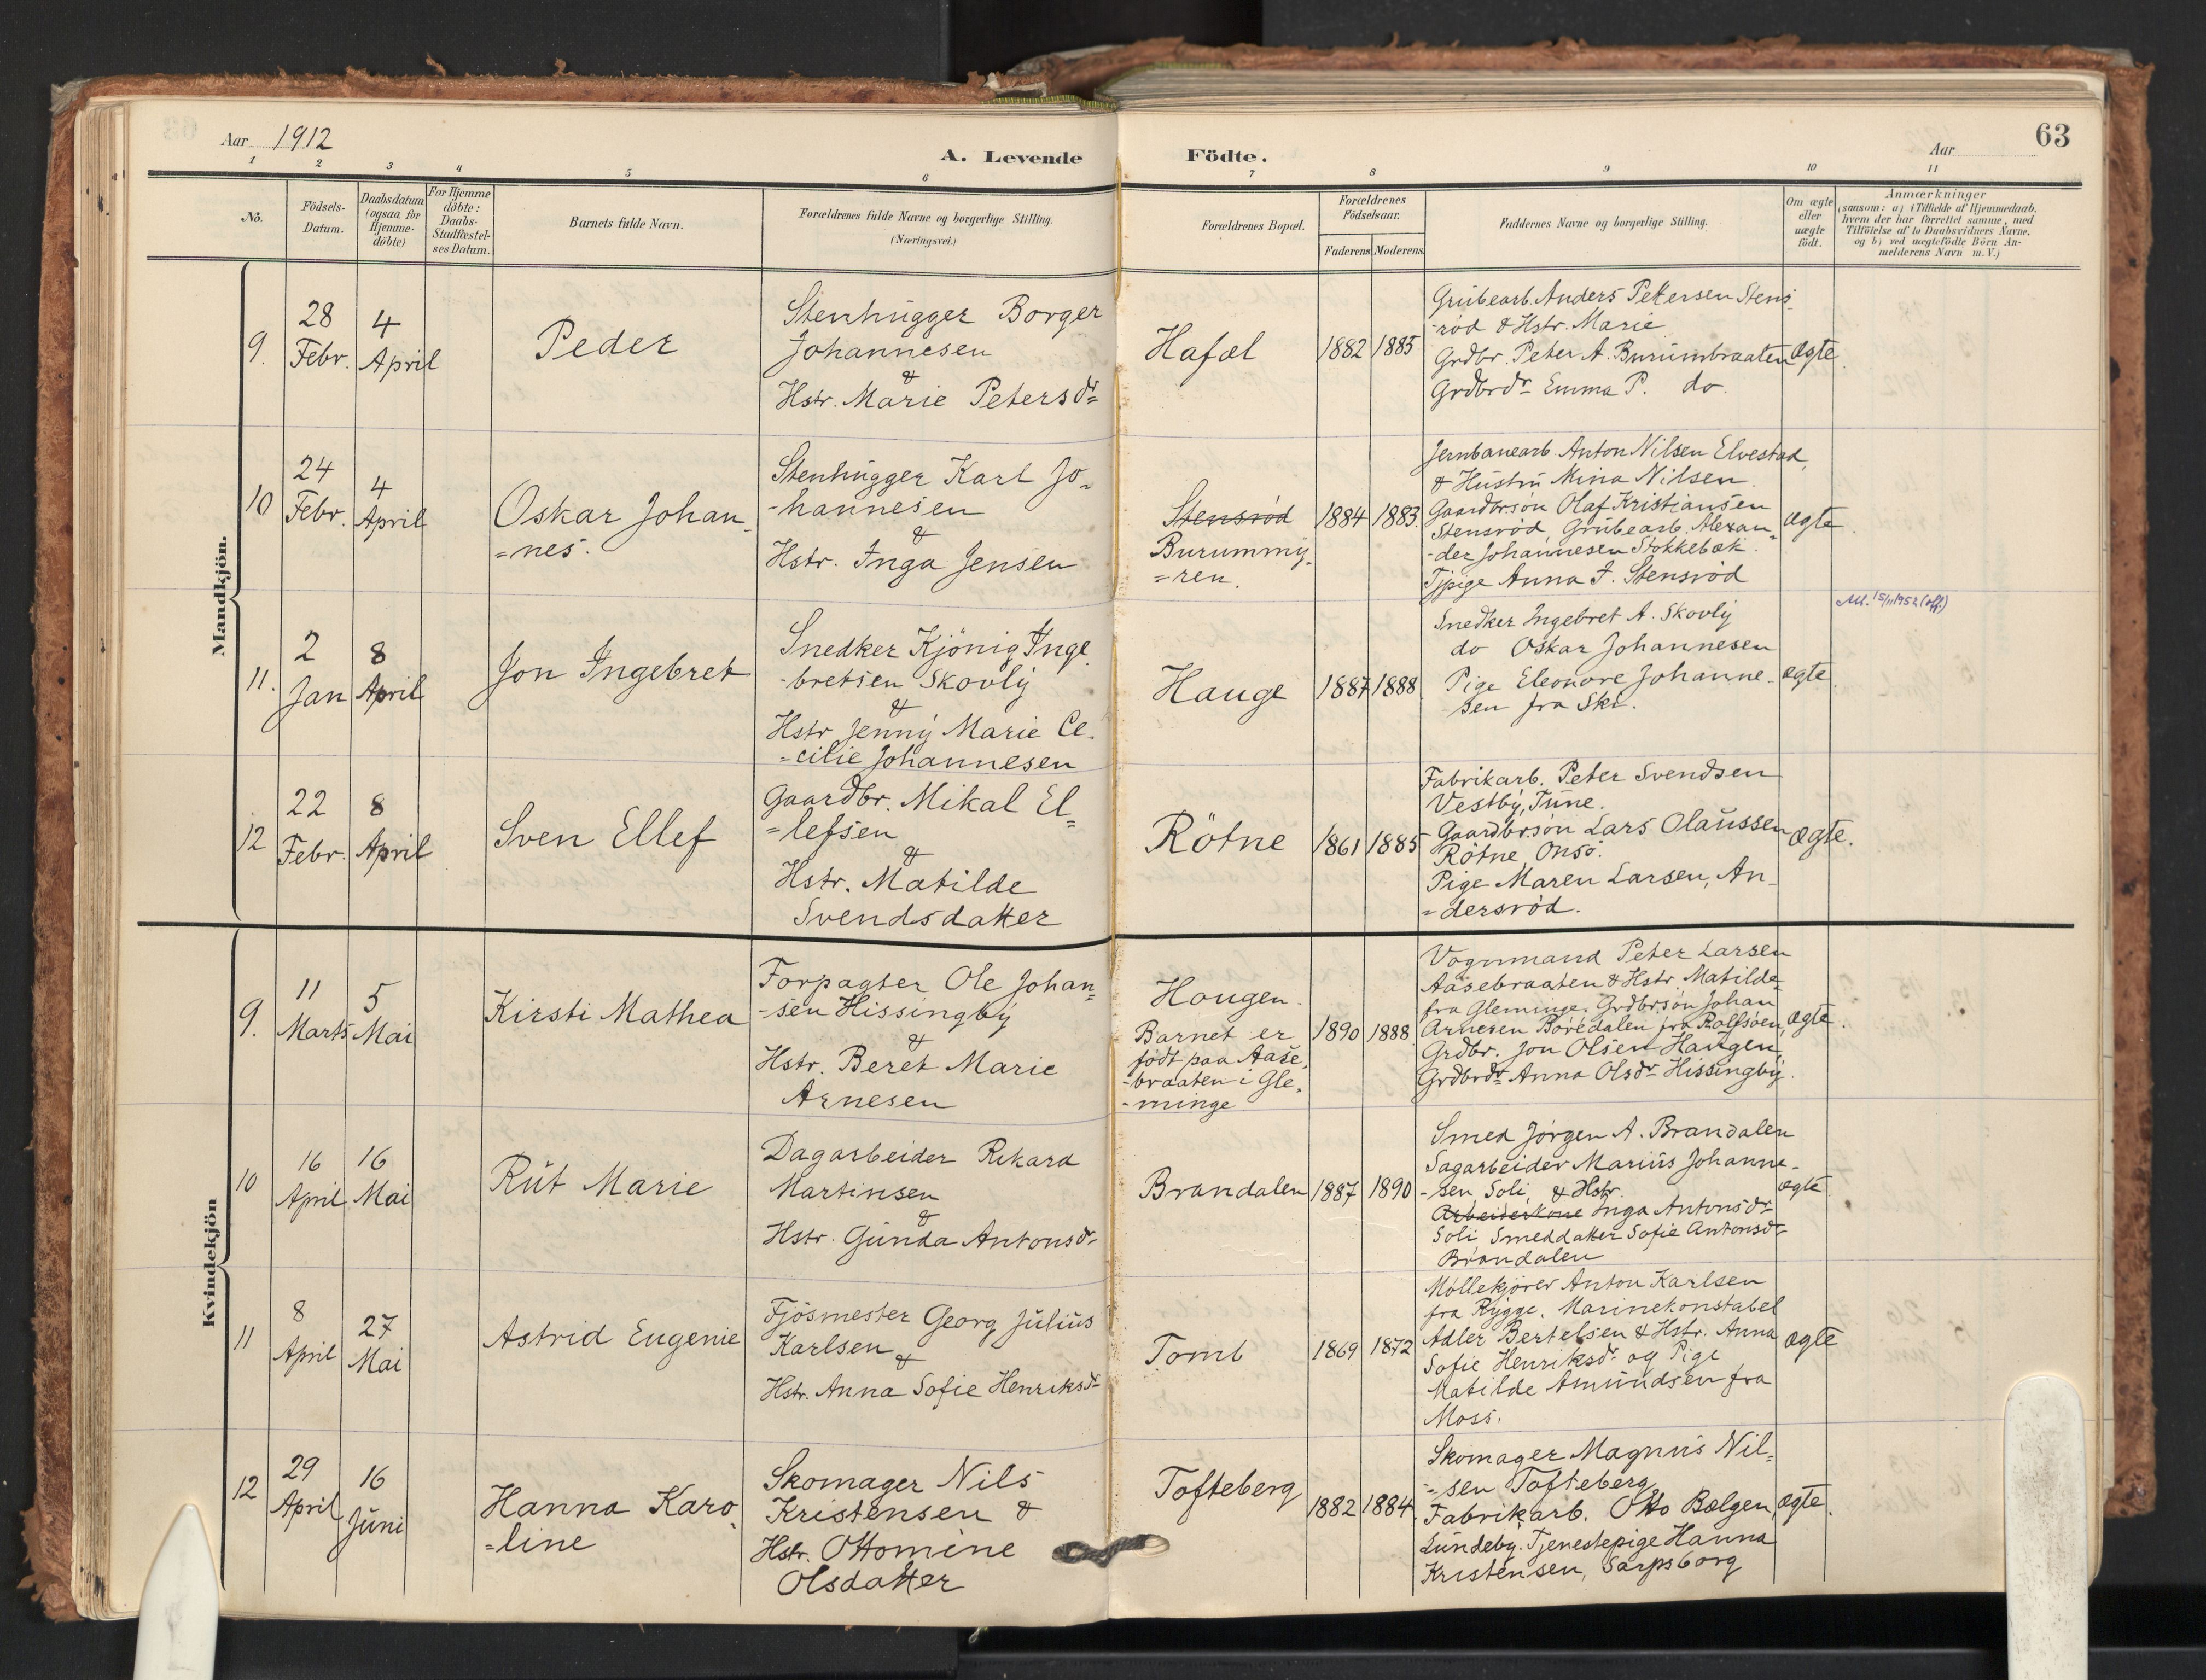 63
Aar 1912
A. Levende Födte.
Aar
1 2 3 4 5 6 7 8 9 10 11
No.
Födsels-
Datum.
Daabsdatum
(ogsaa for
Hjemme-
döbte)
For Hjemme
döbte:
Daabs-
Stadfæstel-
ses Datum.
Barnets fulde Navn.
Forældrenes fulde Navne og borgerlige Stilling.
(Næringsvei.)
Forældrenes Bopæl.
Forældrenes
Födselsaar.
Faderens Moderens
Faddernes Navne og borgerlige Stilling.
Om ægte
eller
uægte
födt.
Anmærkninger
(saasom: a) i Tilfælde af Hjemmedaab,
hvem der har forrettet samme, med
Tilföielse af to Daabsvidners Navne,
og b) ved uægtefödte Börn An-
melderens Navn m. V.)
Mandkjön.
9.
28
Febr.
4
April
Peder
Stenhugger Borger
Johannesen
&
Hstr. Marie Petersdr=
Hafæl
1882 1885
Grubearb. Anders Pettersen Stens-
-röd & Hstr. Marie
Grdbr. Peter A. Burumbraaten
Grdbrdr= Emma P. do.
ægte.
10
24
Febr.
4
April
Oskar Johan-
=nes.
Stenhugger Karl Jo-
-hannesen
&
Hstr. Inga Jensen
Stensröd
Burummy-
=ren.
1884 1883.
Jernbanearb. Anton Nilsen Elvestad,
& Hustru Mina Nilsen.
Gaardbrsön Olaf Kristiansen
Stensröd, Grubearb. Alexan-
-der Johannesen Stokkebæk.
Tjpige Anna J. Stensröd
ægte.
11.
2
Jan
8
April
Jon Ingebret
Snedker Kjönig Inge-
-bretsen Skovly
&
Hstr Jenny Marie Ce-
=cilie Johannesen
Hauge
1887 1888
Snedker Ingebret A. Skovly
do Oskar Johannesen
Pige Eleonore Johanne-
sen fra Ski.
ægte.
15/11 1952 (off.)
12
22
Febr.
8
April
Sven Ellef
Gaardbr. Mikal El=
=lefsen
&
Hstr. Matilde
Svendsdatter
Rötne
1861 1885
Fabrikarb. Peter Svendsen
Vestby, Tune.
Gaardbrsön Lars Olaussen
Rötne, Onsö.
Pige Maren Larsen, An-
=dersröd.
ægte.
Kvindekjön
9.
11
Marts
5
Mai
Kirsti Mathea
Forpagter Ole Johan=
-sen Hissingby
&
Hstr. Beret Marie
Arnesen
Hougen.
Barnet er
födt paa Aase-
-braaten i Gle-
-minge
1890 1888
Vognmand Peter Larsen
Aasebraaten & Hstr. Matilde
fra Gleminge. Grdbrsön Johan
Arnesen Borédalen fra Rolfsöen,
Grdbr. Jon Olsen Haugen,
Grdbrdr. Anna Olsdr= Hissingby.
ægte.
10
16
April
16
Mai
Rut Marie
Dagarbeider Rikard
Martinsen
&
Hstr. Gunda Antonsdr-
Brandalen
1887 1890
Smed Jörgen A. Brandalen
Sagarbeider Marius Johanne-
-sen Soli, & Hstr.
Arbeiderkone Inga Antonsdr=
Soli Smeddatter Sofie Antonsdr-
Brandalen
ægte
11
8
April
27
Mai
Astrid Eugenie
Fjösmester Georg Julius
Karlsen
&
Hstr. Anna Sofie Henriksdr-
Tomb
1869 1872
Möllekjörer Anton Karlsen
fra Rygge. Marinekonstabel
Adler Bertelsen & Hstr. Anna
Sofie Henriksdr. og Pige
Matilde Amundsen fra
Moss.
ægte
12
29
April
16
Juni
Hanna Karo-
=line
Skomager Nils
Kristensen &
Hstr. Ottomine
Olsdatter
Tofteberg
1882 1884.
Skomager Magnus Nil=
=sen Tofteberg,
Fabrikarb. Otto Bælgen,
Lundeby. Tjenestepige Hanna
Kristensen, Sarpsborg
ægte.